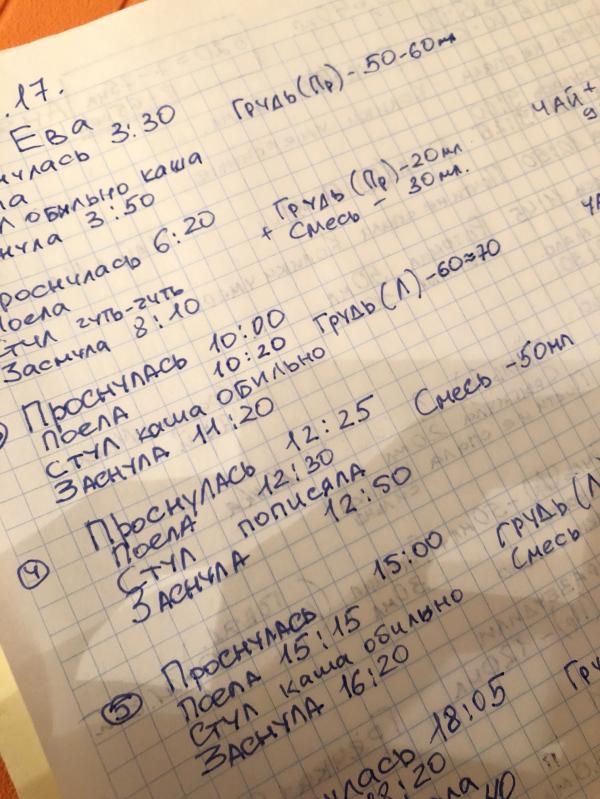 .17.
Ева
нулась 3:30 Грудь (Пр) - 50-60мл
ла
л обильно каша
нула 3:50
Чай +
9
роснулась 6:20 Грудь (Пр) - 20мл
Поела + Смесь - 30мл.
Стул чуть-чуть
Заснула 8:10
Проснулась 10:00 Грудь (Л) - 60≈70
Поела 10:20
Стул каша обильно
Заснула 11:20
④ Проснулась 12:25 Смесь - 50мл
Поела 12:30
Стул пописяла
Заснула 12:50
⑤ Проснулась 15:00 Грудь (Л)
Поела 15:15 Смесь
Стул каша обильно
Заснула 16:20
нулась 18:05 Гру
8:20